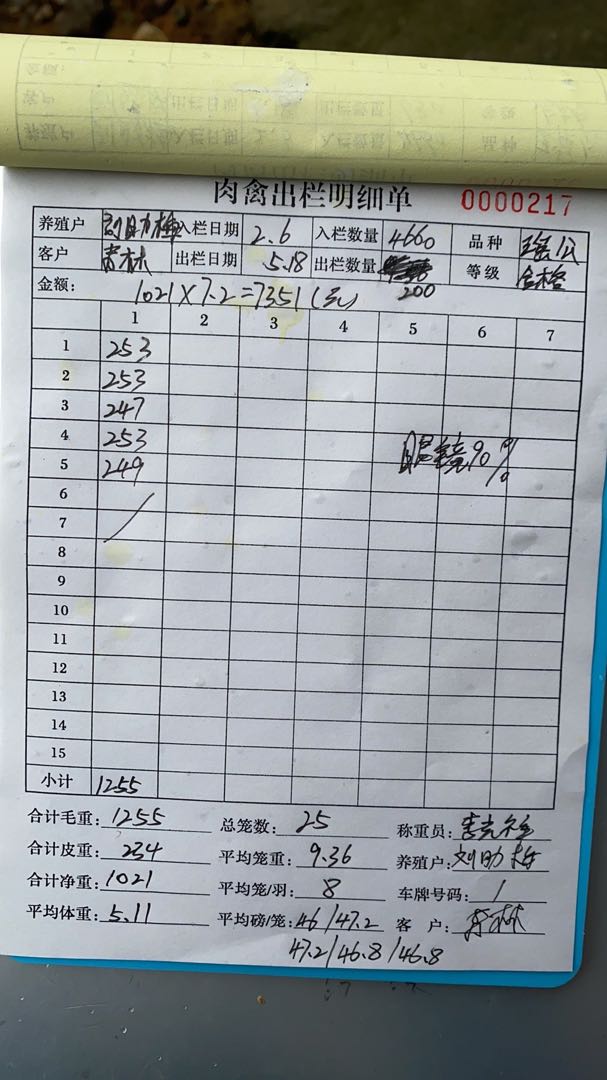 肉禽出栏明细单 0000217
养殖户 刘助梅 入栏日期 2.6 入栏数量 4660 品种 瑶公
客户 李林 出栏日期 5.18 出栏数量 200 等级 合格
金额: 1021×7.2=7351(元)
1 2 3 4 5 6 7
1 253
2 253
3 247
4 253 眼镜90%
5 249
6
7
8
9
10
11
12
13
14
15
小计 1255
合计毛重: 1255 总笼数: 25 称重员:
合计皮重: 234 平均笼重: 9.36 养殖户: 刘助梅
合计净重: 1021 平均笼/羽: 8 车牌号码: 1
平均体重: 5.11 平均磅/笼: 46/47.2 客户: 李林
47.2/46.8/46.8